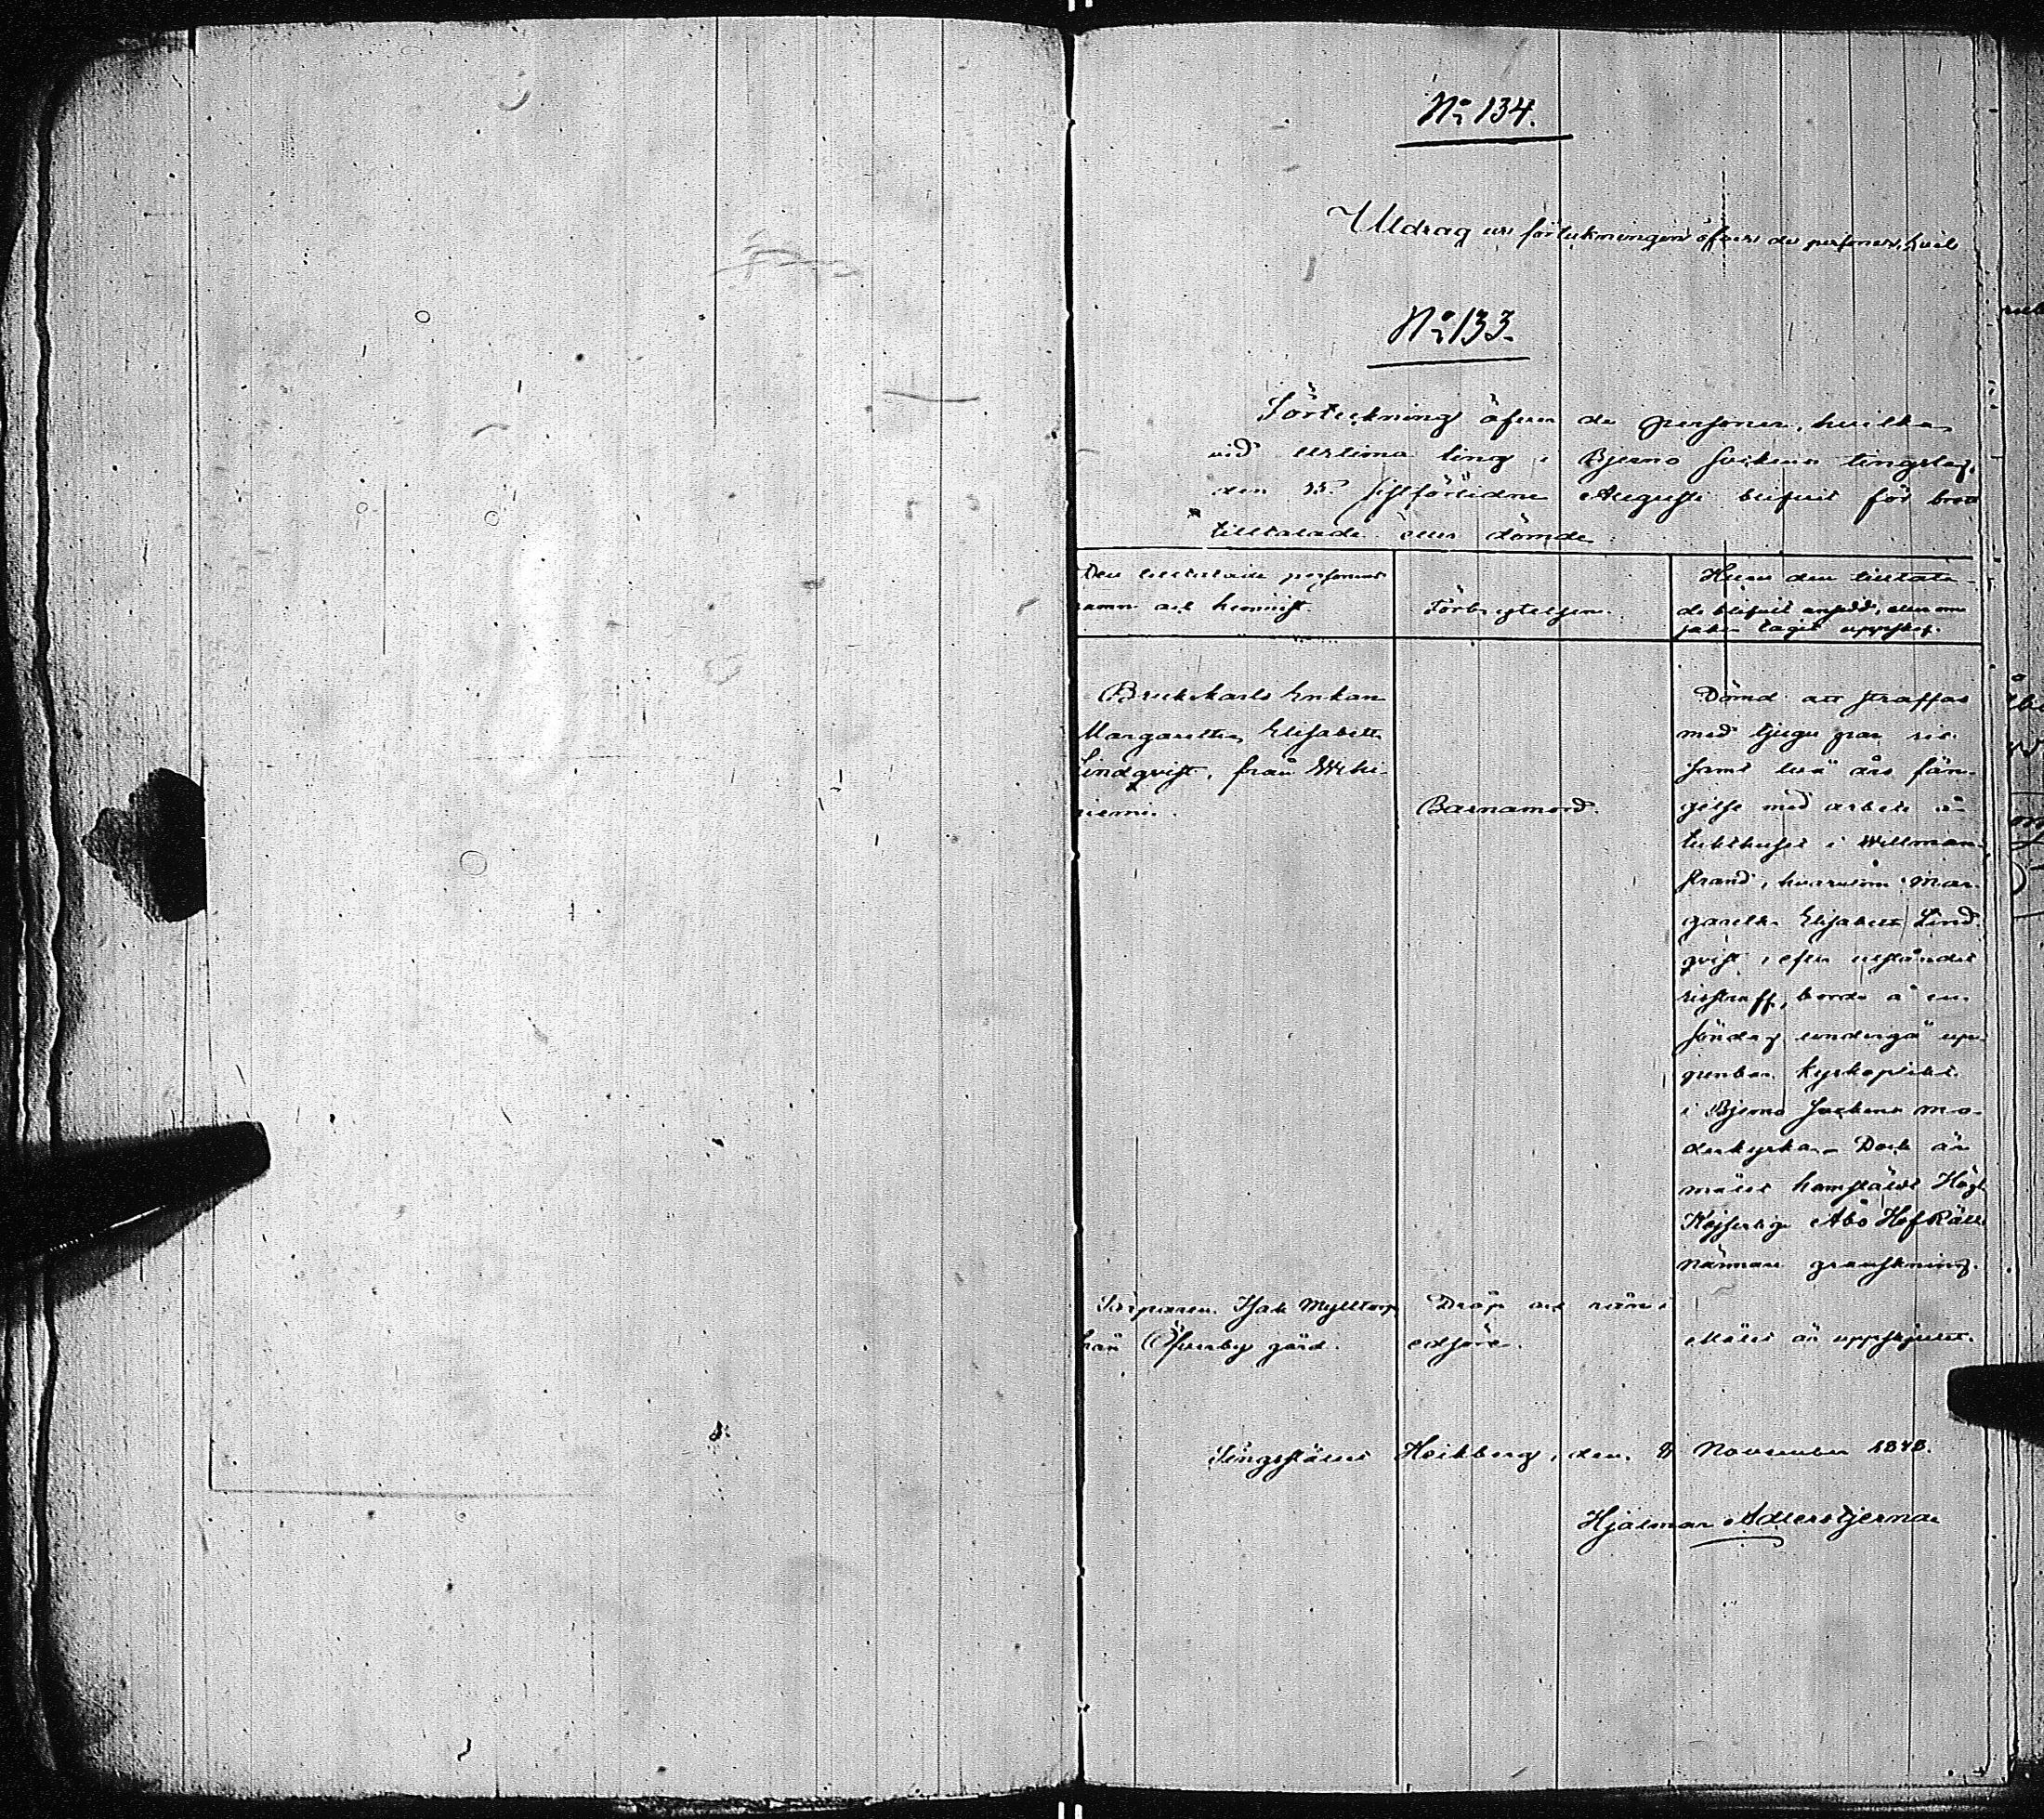 No 134.
Utdrag ur förteckningen öfver de personer, hvil
No 133.
Förteckning öfver de personer, hvilka
vid urtima ting i Bjerno Sockens tingslag,
den sistförlidne Augusti blifvit för brott
tilltalade eller dömde.
Den tilltalade personens
namn och hemvist
Förbrytelsen.
Huru den tilltala-
de blifvit ansedd, eller om
saken tagit uppskof.
Brukskarls Enkan
Margaretha Elisabeth
Lindqvist, från
niemi.
Barnamord.
Dömd att straffas
med tjugu par ris
samt två års fän-
gelse med arbete å
tukthuset i Willman-
strand, hvarutom Mar-
garetha Elisabeth Lind-
qvist, efter utståndet
risstraff, borde å en
Söndag undergå up-
penbar kyrkoplikt
i Bjerno Sockens mo-
derkyrka. Dock är
målet hemstäldt Högl.
Kejserlige Åbo HofRätts
nämnare granskning.
Torparen Isak Mylltorp
från Öfverby gård.
Dråp och rån i
edsöre.
Målet är uppskjutet.
Tingsstället Heikberg, den November 1848.
Hjalmar Adlerstjerna